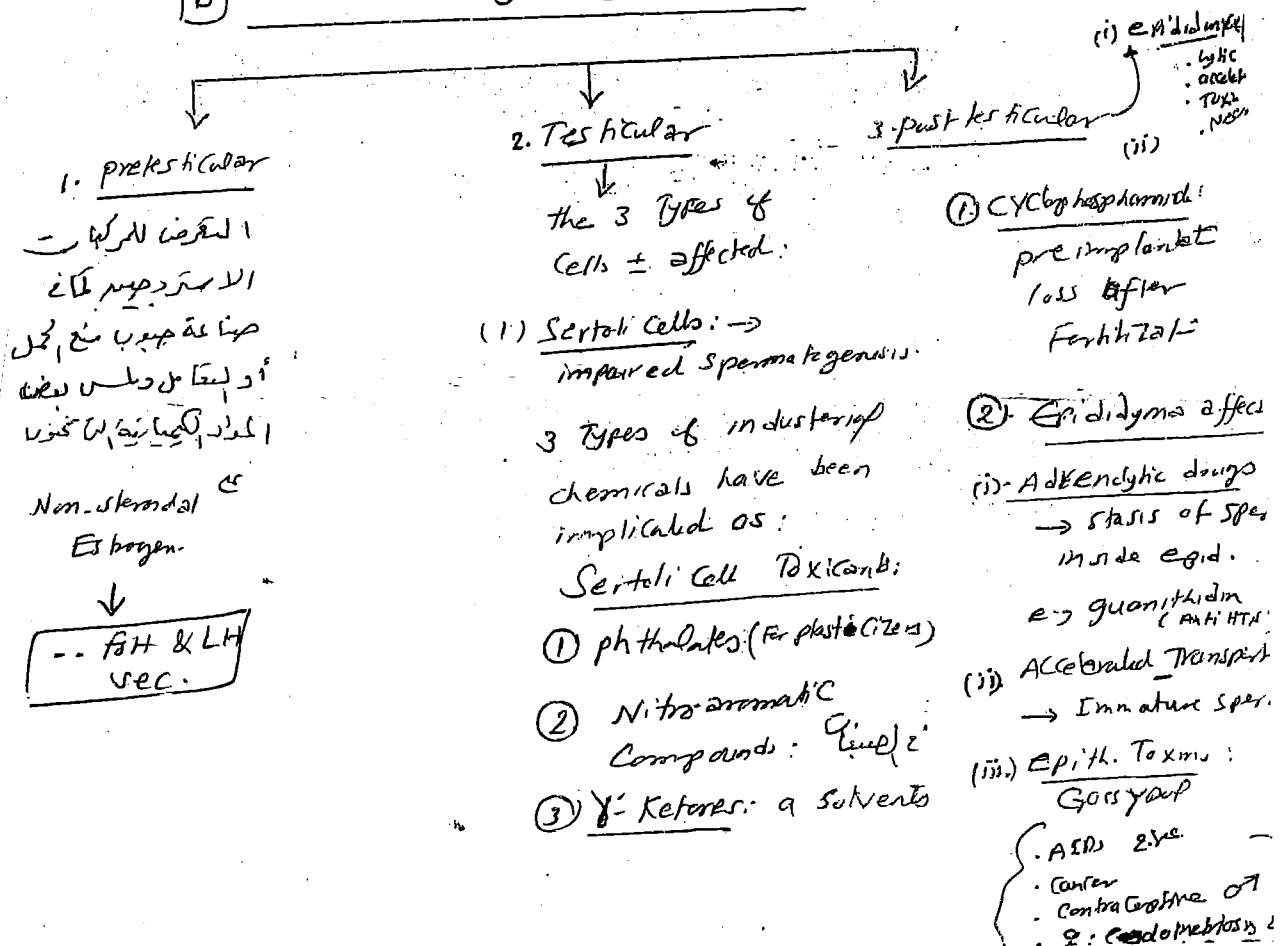 b
1. pretesticular
التعرض للمركبات
الاستروجين كما في
صناعة حبوب منع الحمل
أو التعامل ولمس بعض
المواد الكيميائية التي تحتوى
Non-steroidal
Estrogen.
-- FSH & LH
sec.
2. Testicular
the 3 Types of
Cells ± affected:
(1) Sertoli Cells: →
impaired spermatogenesis.
3 Types of industerial
chemicals have been
implicated as:
Sertoli Cell Toxicants:
① phthalates (For plasticizers)
② Nitro-aromatic
Compounds:
③ γ- Ketones: a solvents
3. post testicular
(i) epididymal
. lytic
. accelet
. Toxi
(ii)
① Cyclophosphamide:
pre implantat
loss after
Fertilizat-
② Epididyma affecs
(i)- Adrenelytic drugs
→ stasis of sper
inside epid.
e.g guanithidin
(Anti HTN
(ii) Accelerated Transport
→ Immature sper.
(iii.) Epith. Toxins:
Gossypop
. AIDs
. Cancer
. Contraceptive ♂